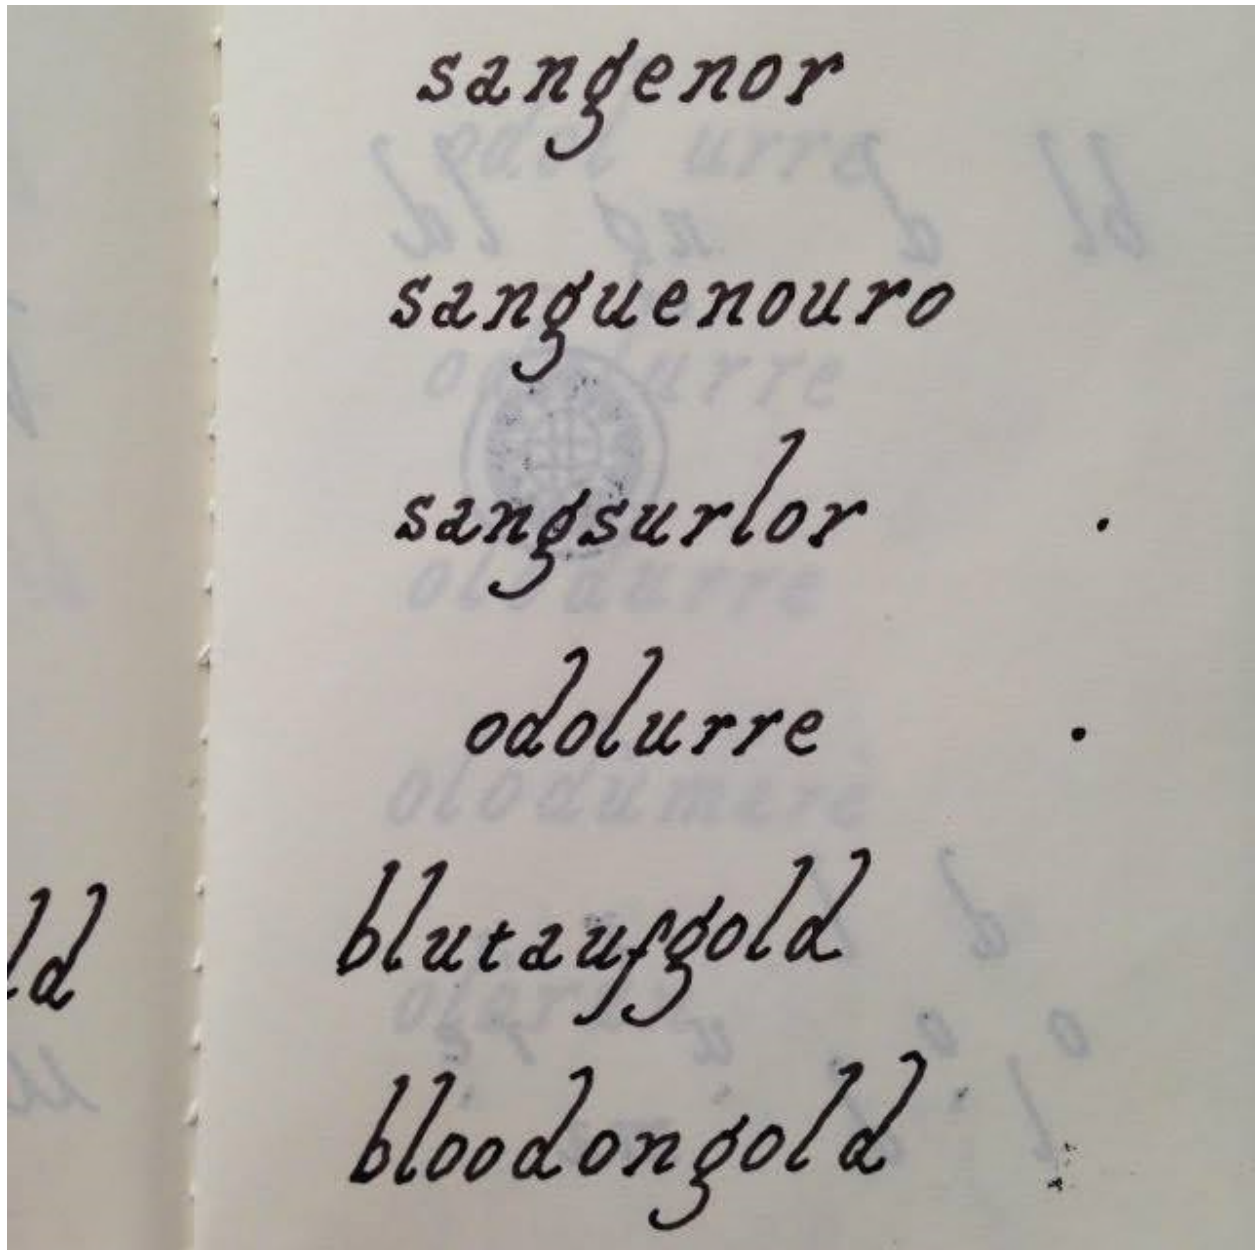 sangenor
sanguenouro
sangsurlor
odolurre
blutaufgold
bloodongold